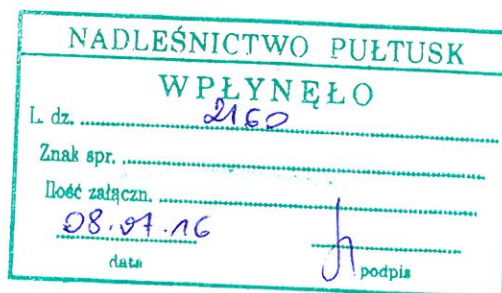 NADLEŚNICTWO PUŁTUSK
WPŁYNĘŁO
L. dz. 2160
Znak spr.
Ilość załączn.
08.07.16
data podpis